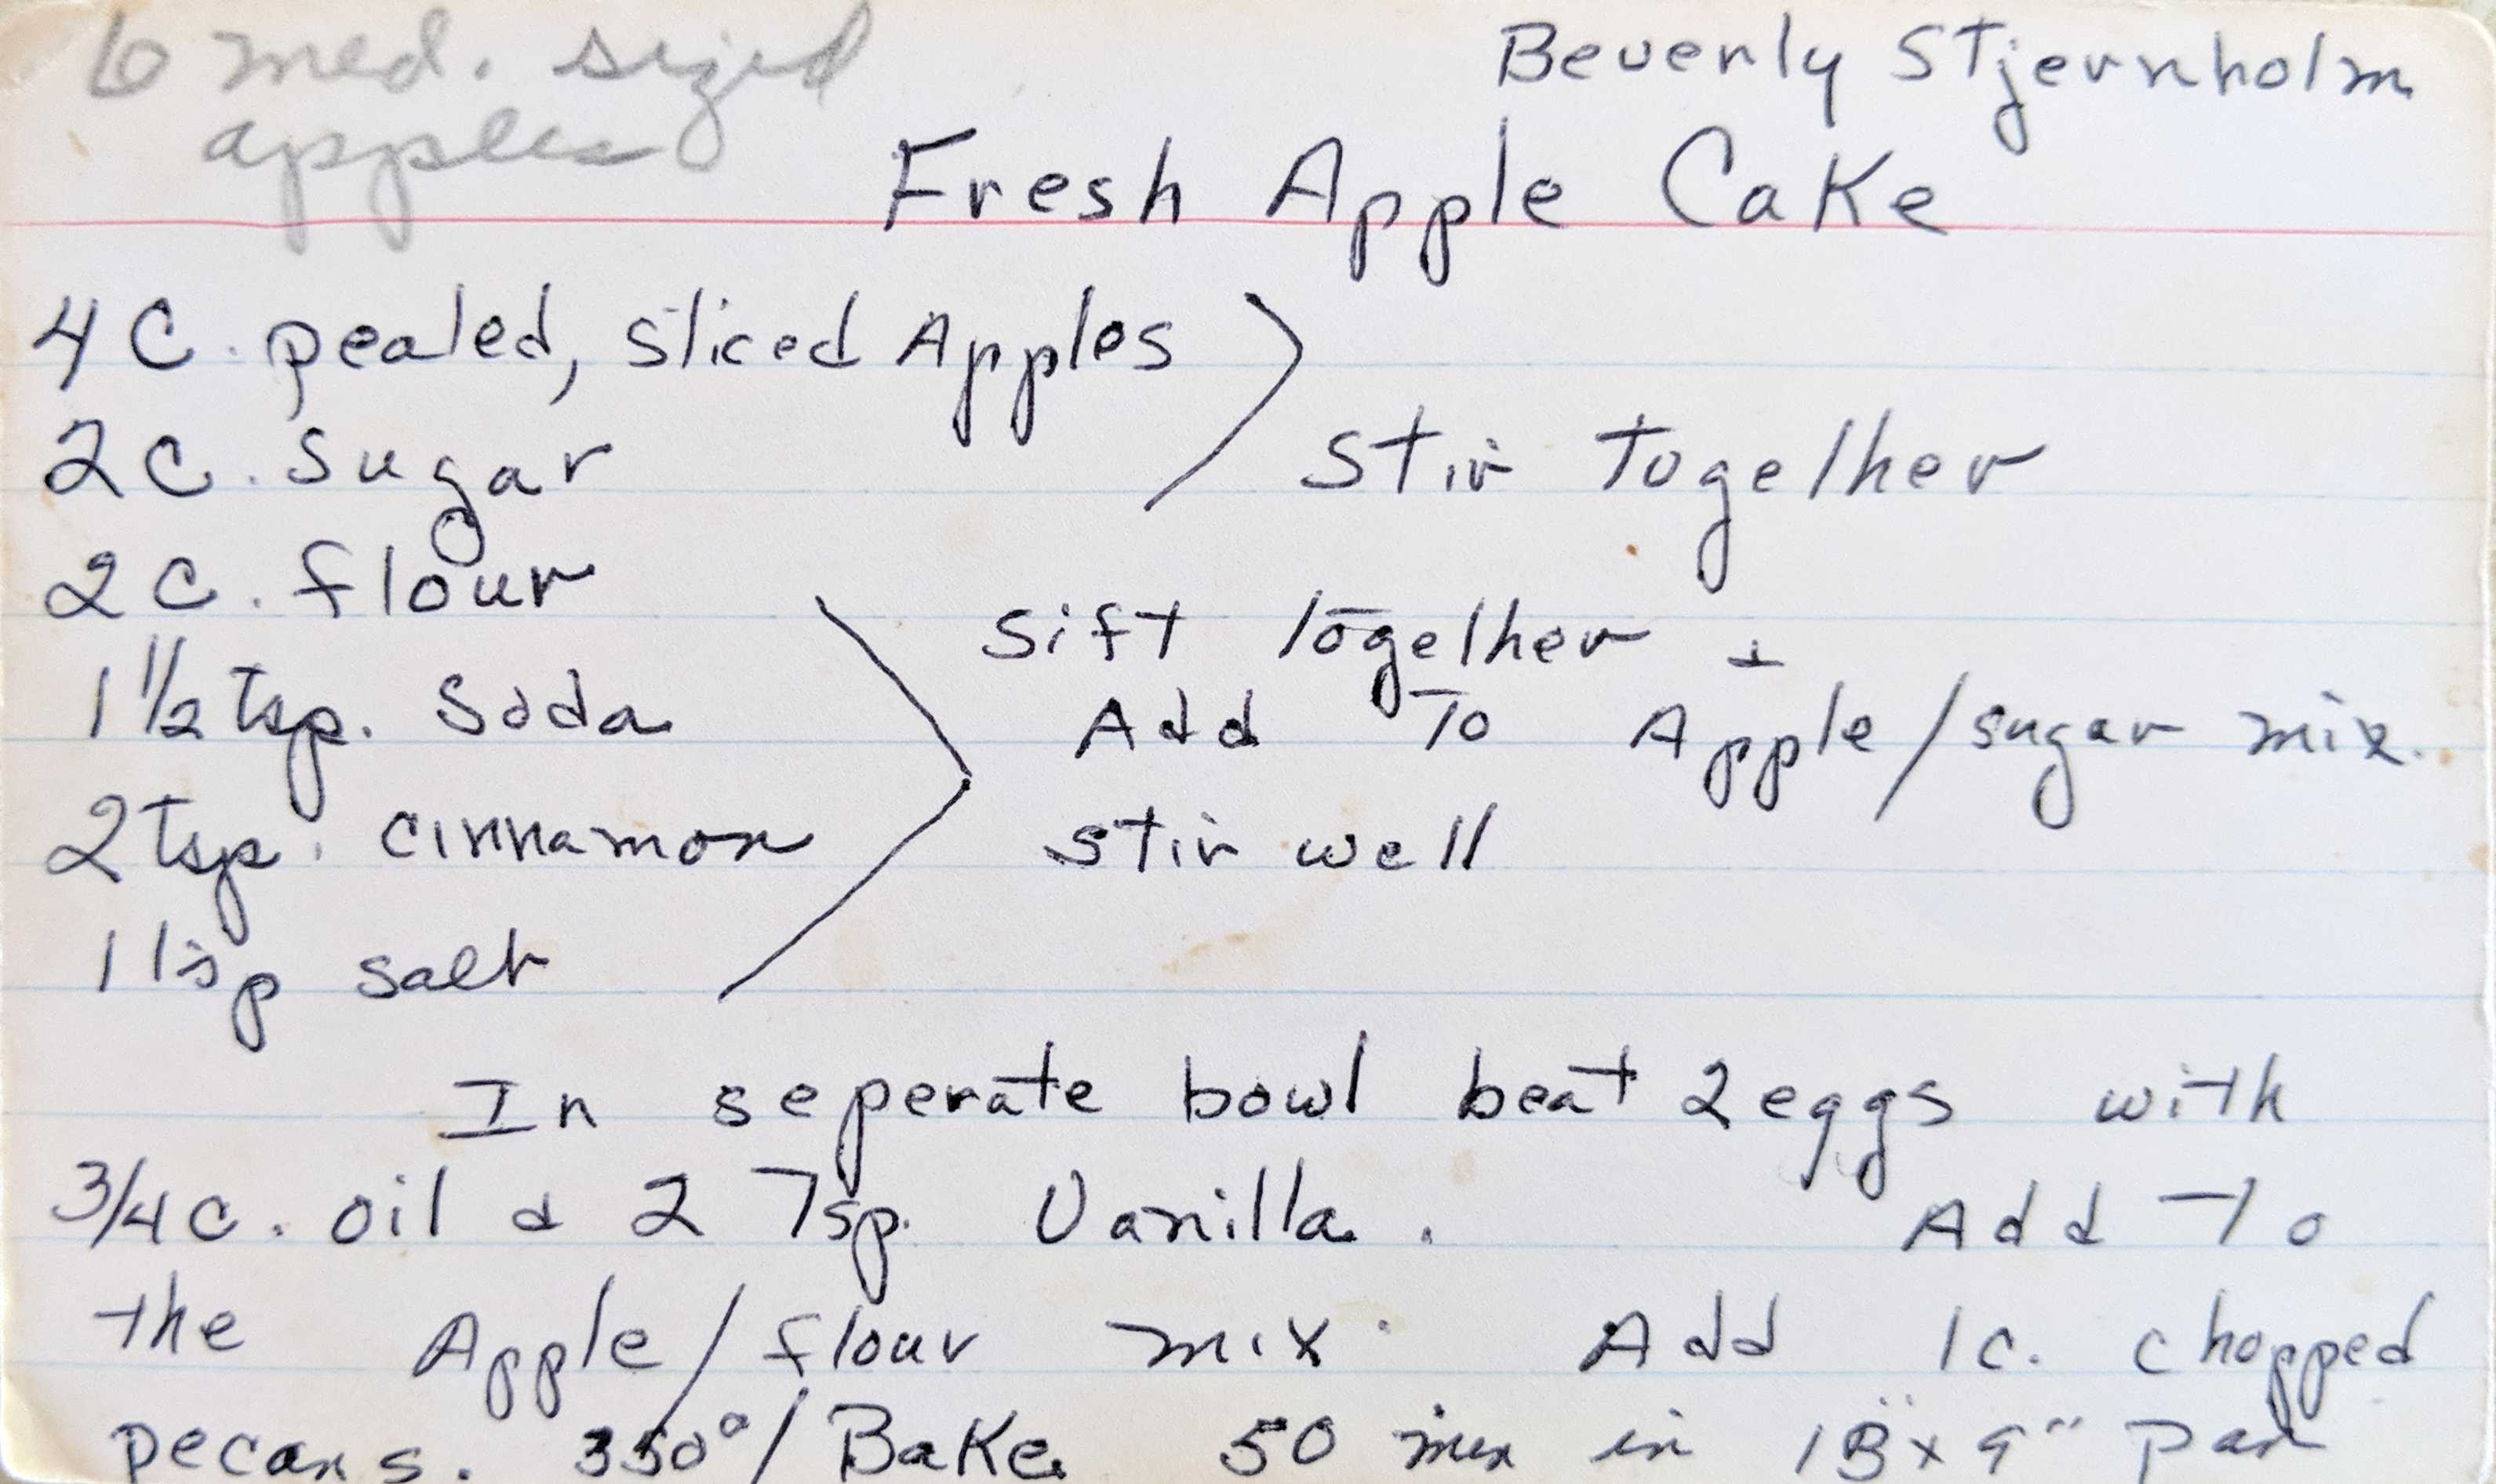 6 med. sized
apples
Beverly Stjernholm
Fresh Apple Cake
4 C. pealed, sliced Apples
2 C. sugar
Stir Together
2 C. flour
1 1/2 tsp. Soda
2 tsp. cinnamon
1 tsp salt
Sift together &
Add To Apple/sugar mix.
stir well
In seperate bowl beat 2 eggs with
3/4 c. oil & 2 Tsp. Vanilla. Add To
the Apple/flour mix. Add 1 c. chopped
pecans. 350°/Bake 50 min in 13"x9" pan